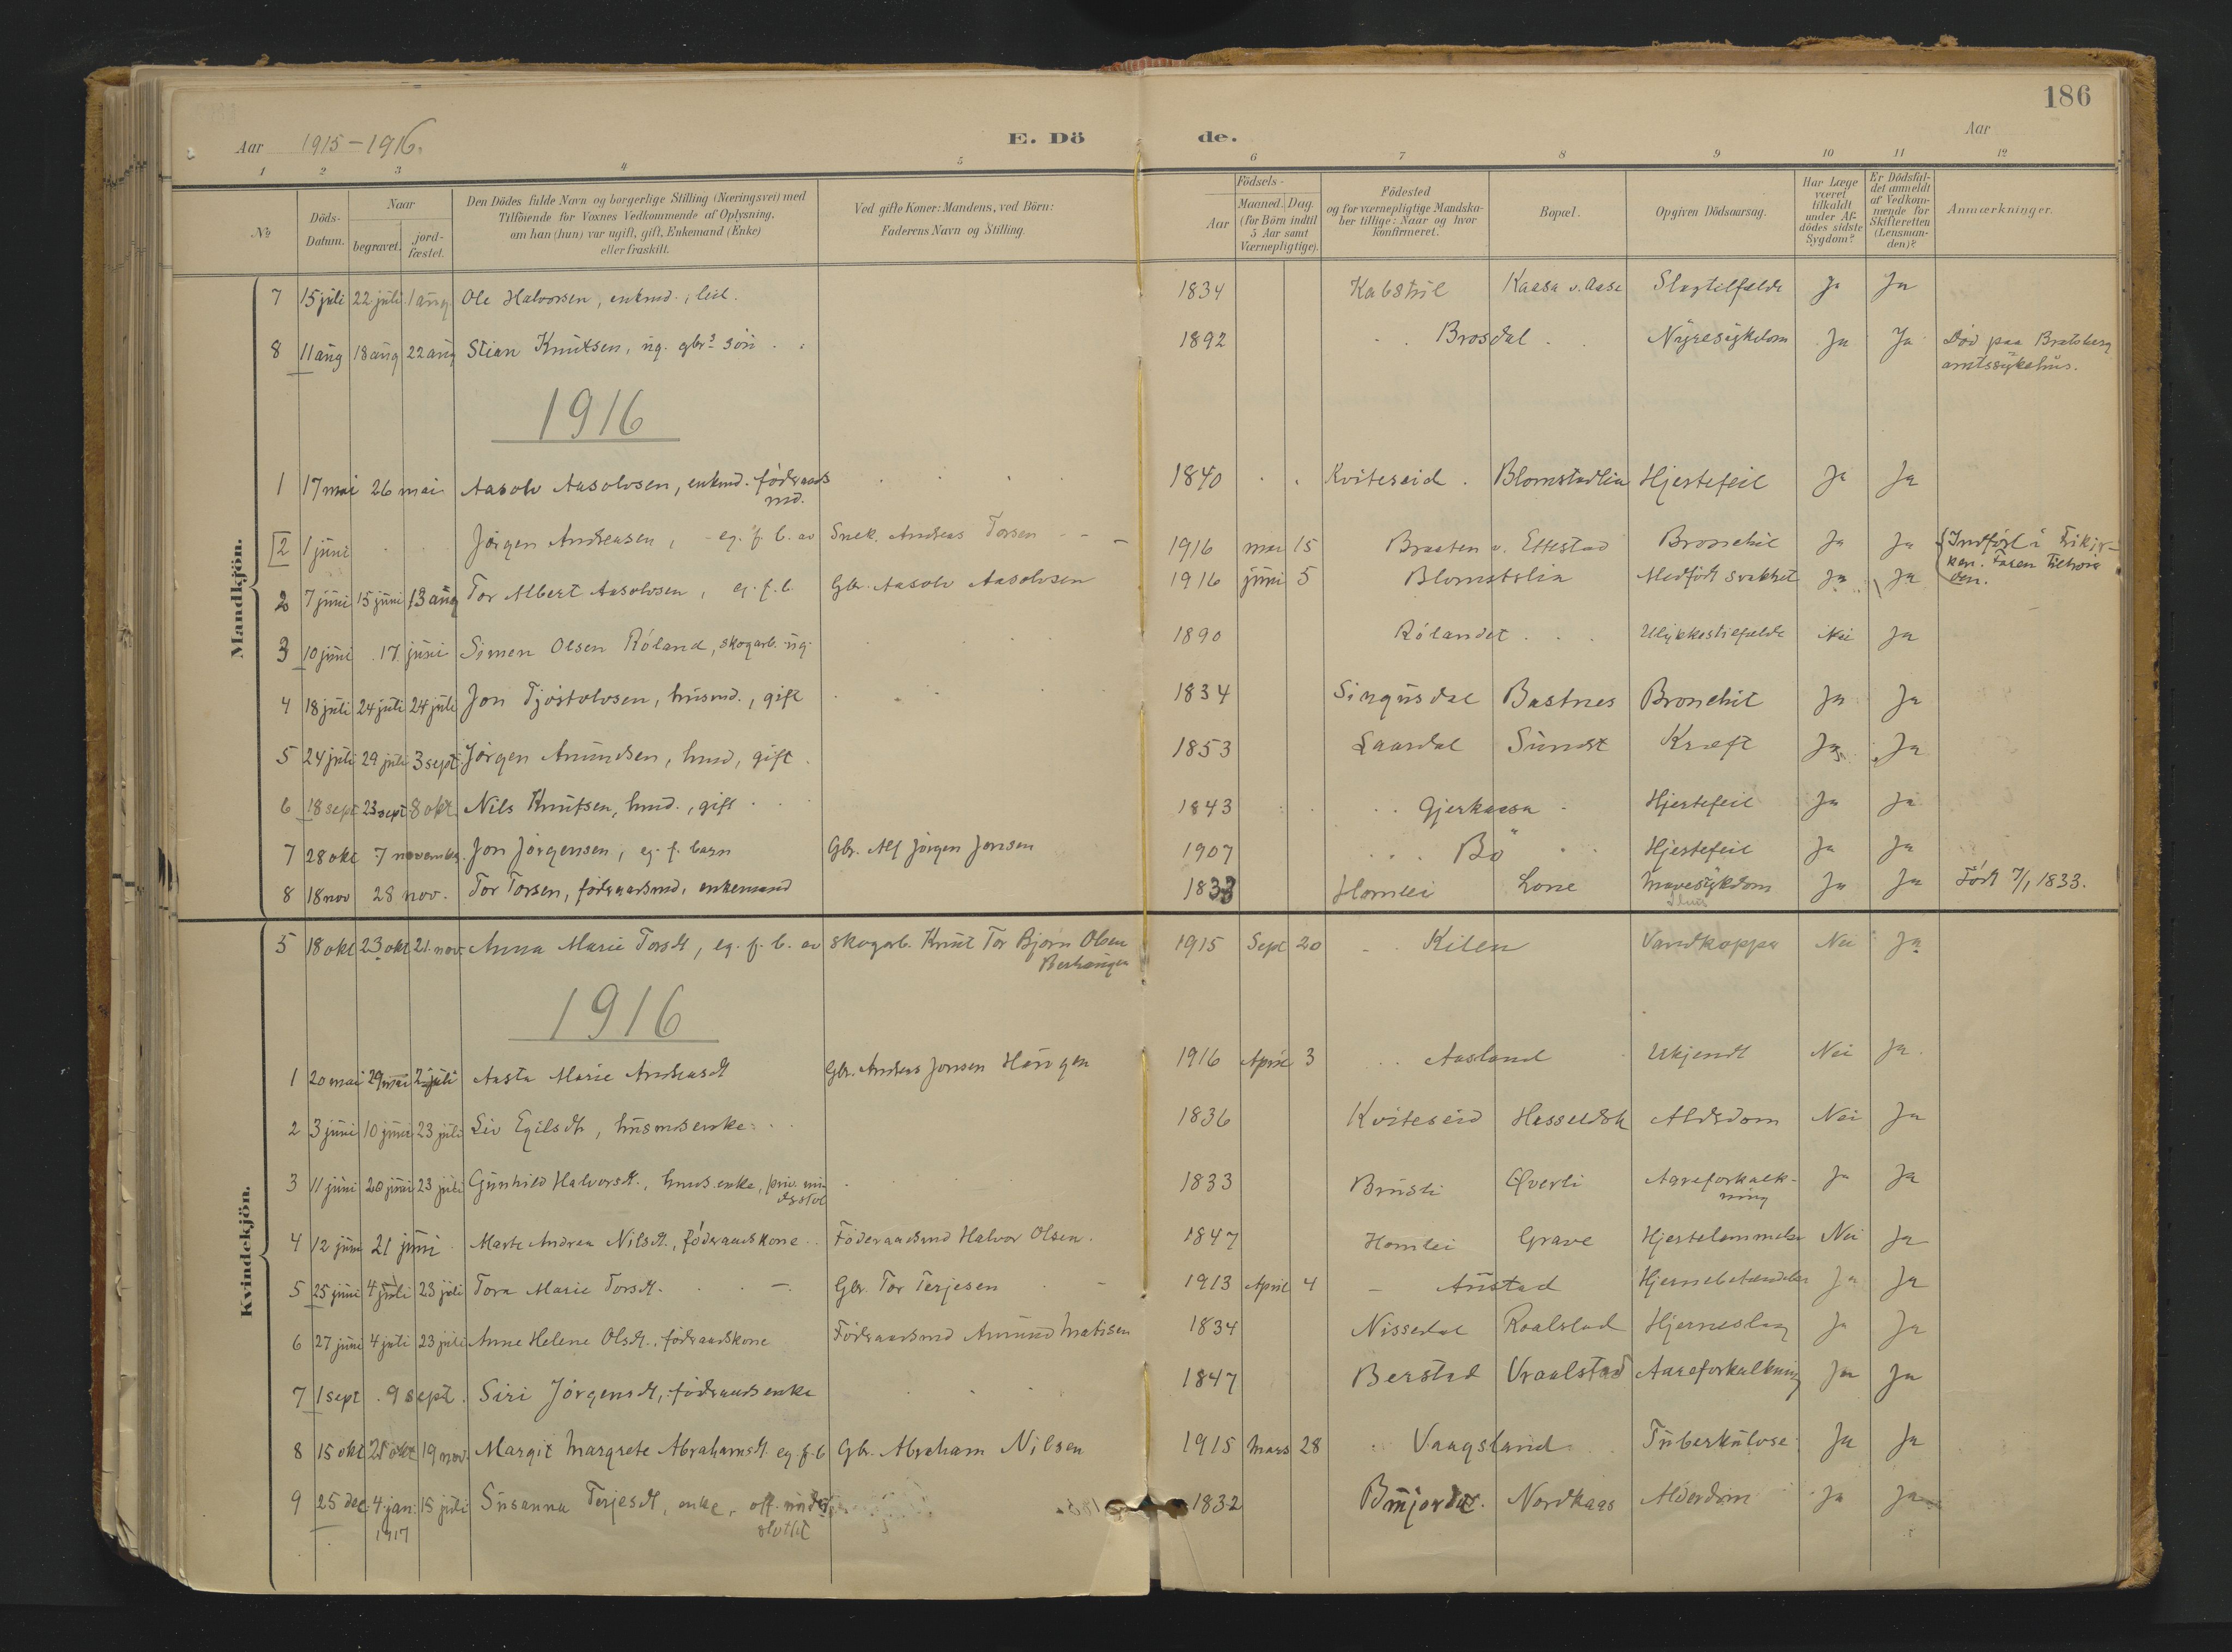 186
Aar 1915-1916. E. Dö de. Aar
1 2 3 4 5 6 7 8 9 10 11 12
No
Döds-Datum.
Naar
begravet.
jord-fæstet.
Den Dödes fulde Navn og borgerlige Stilling (Næringsvei) med
Tilföiende for Voxnes Vedkommende af Oplysning,
om han (hun) var ugift, gift, Enkemand (Enke)
eller fraskilt.
Ved gifte Koner: Mandens, ved Börn:
Faderens Navn og Stilling.
Födsels-
Aar
Maaned. Dag.
(for Börn indtil
5 Aar samt
Værnepligtige).
Födested
og for værnepligtige Mandska-
ber tillige: Naar og hvor
konfirmeret.
Bopæl.
Opgiven Dödsaarsag.
Har Læge
været
tilkaldt
under Af-
dödes sidste
Sygdom?
Er Dödsfal-
det anmeldt
af Vedkom-
mende for
Skifteretten
(Lensman-
den)?
Anmærkninger.
Mandkjön.
7 15 juli 22 juli 1 aug Ole Halvorsen, enkmd., 1834 Kabstul Kaasa v. Aase Slagtilfælde Ja Ja
8 11 aug 18 aug 22 aug Stian Knutsen, ug. gbrs søn 1892 Brosdal Nyresykdom Ja Ja Død paa Bratsberg
amtssykehus.
1916
1 17 mai 26 mai Aasolv Aasolvsen, enkmd. föderaads
md. 1840 Kviteseid Blomstadlia Hjertefeil Ja Ja
2 1 juni Jörgen Andreasen, eg. f. b. av Snek. Andreas Torsen 1916 mai 15 Braaten v. Eftestad Bronchit Ja Ja Indført i Frikir-
ken. Faren tilhører
den.
2 7 juni 15 juni 13 aug Tor Albert Aasolvsen, eg. f. b. Gbr. Aasolv Aasolvsen 1916 juni 5 Blomstslia Medfødt svakhet Ja Ja
3 10 juni 17 juni Simen Olsen Röland, skogarb. ug. 1890 Rölandet Ulykkestilfælde Nei Ja
4 18 juli 24 juli 24 juli Jon Tjöstolvsen, husmd., gift 1834 Singusdal Bastnes Bronchit Ja Ja
5 24 juli 29 juli 3 sept. Jörgen Amundsen, hmd, gift 1853 Laardal Sundt Kræft Ja Ja
6 18 sept 23 sept 8 okt. Nils Knutsen, hmd., gift 1843 Gjerkaasa Hjertefeil Ja Ja
7 28 okt 7 november Jon Jörgensen, eg. f. barn Gbr. Alf Jörgen Jonsen 1907 Bö Hjertefeil Ja Ja
8 18 nov 28 nov. Tor Torsen, föderaadsmd, enkemand 1833 Homlei Lone Mavesykdom Ja Ja Født 7/1 1833.
Kvindekjön.
5 18 okt 23 okt 21. nov. Anna Marie Torsdt, eg. f. b. av skogarb. Knut Tor Bjørn Olsen
1915 Sept 20 Kilen Vandkopper Nei Ja
1916
1 20 mai 29 mai 2 juli Aasta Marie Andreasdt Gbr. Andreas Jonsen Haugen 1916 April 3 Aasland Ukjendt Nei Ja
2 3 juni 10 juni 23 juli Liv Egilsdt, husmdsenke. 1836 Kviteseid Alderdom Nei Ja
3 11 juni 20 juni 23 juli Gunhild Halvorsdt., hmds. enke, priv. un-
derstøt 1833 Brusli Øverli Aareforkalk-
ning Ja Ja
4 12 juni 21 juni Marte Andrea Nilsdt., föderaadskone Föderaadsmd Halvor Olsen. 1847 Homlei Grave Hjertelammelse Nei Ja
5 25 juni 4 juli 23 juli Tora Marie Torsdt. Gbr. Tor Terjesen 1913 April 4 Austad Hjernebetændelse Ja Ja
6 27 juni 4 juli 23 juli Anne Helene Olsdt., föderaadskone Föderaadsmd Amund Matisen 1834 Nissedal Roalstad Hjerneslag Ja Ja
7 1 sept 9 sept. Siri Jörgensdt, föderaadsenke 1847 Berstad Vraalstad Aareforkalkning Ja Ja
8 15 okt 21 okt 19 nov. Margit Margrete Abrahamsdt. eg. f. b Gbr. Abraham Nilsen 1915 Mars 28 Vaagsland Tuberkulose Ja Ja
9 25 dec. 4. jan. 15 juli Susanna Terjesdt, enke, off. under
støttet 1832 Nordkaas Alderdom Ja Ja
1917